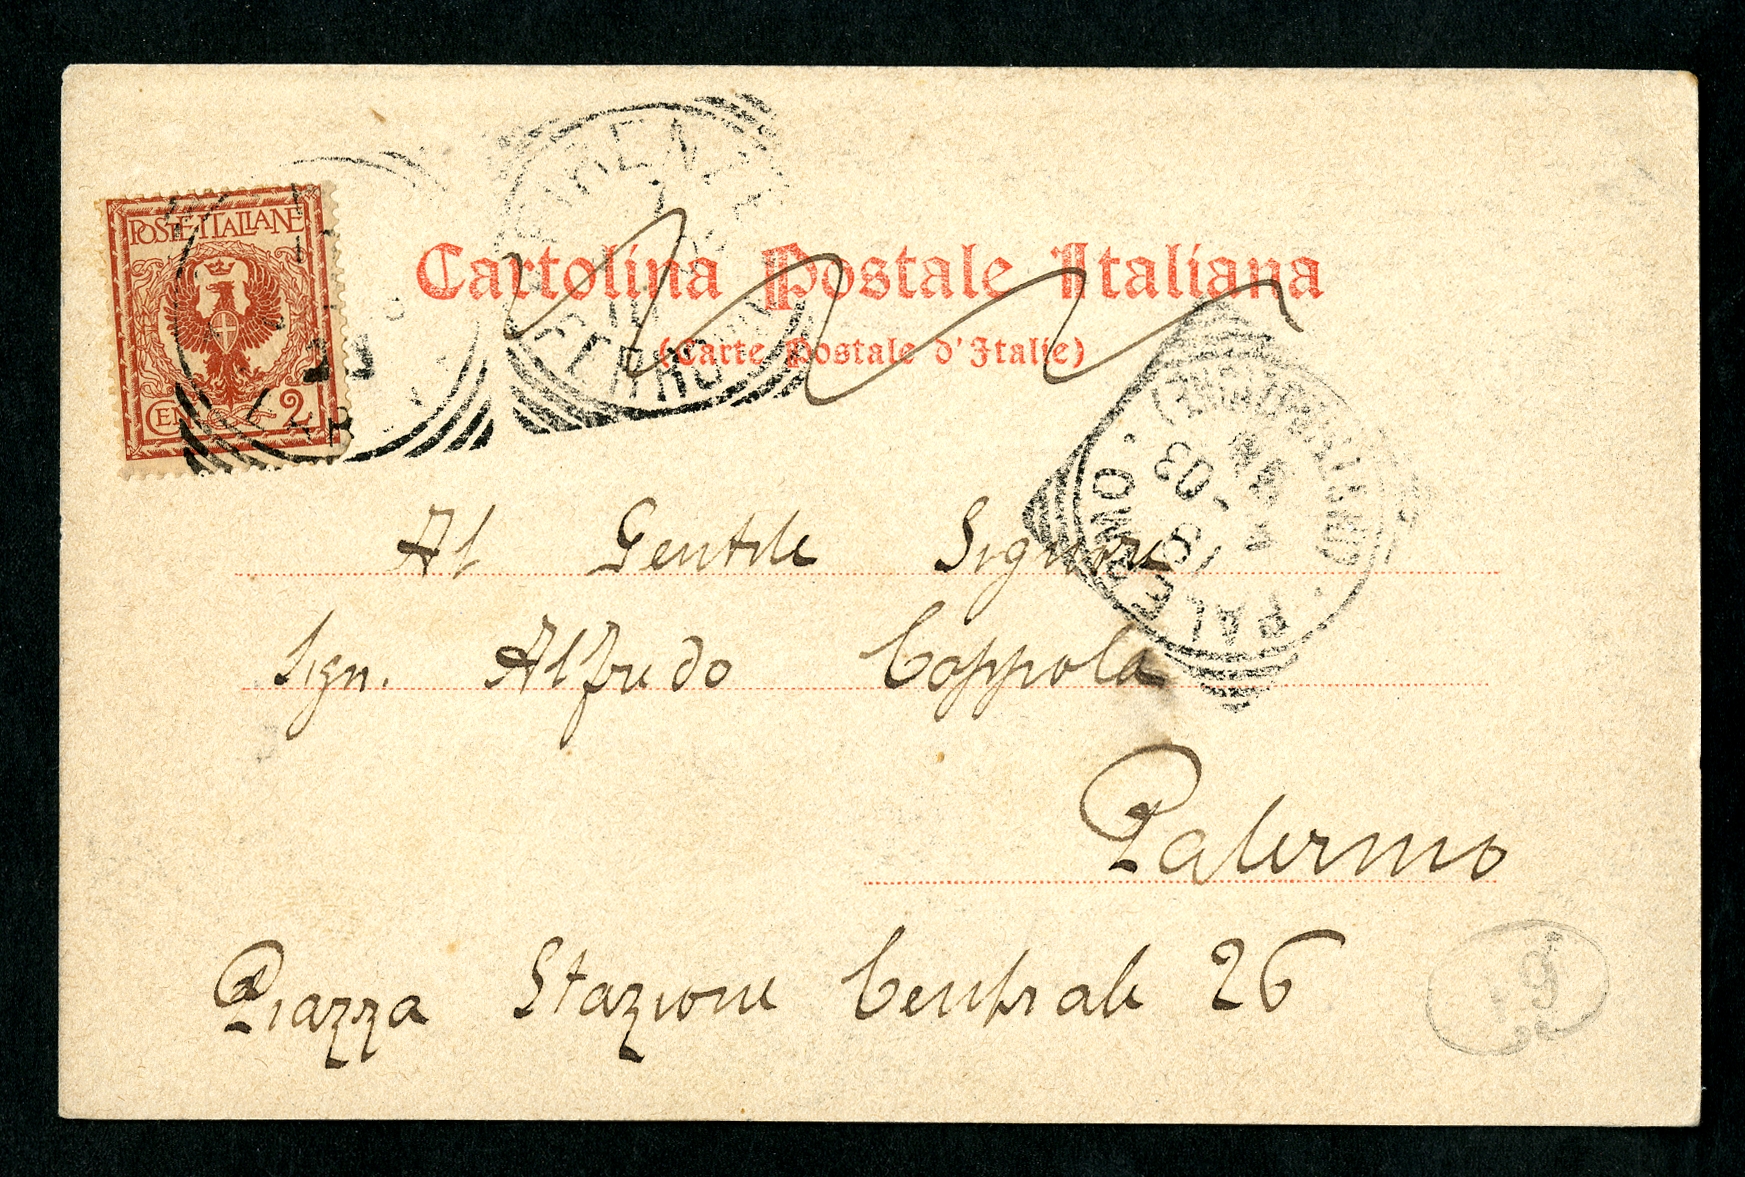 POSTE ITALIANE
CEN 2
Cartolina Postale Italiana
(Carte Postale d'Italie)
FERROVIA
PALERMO
03
Al Gentile Signore
Sign. Alfredo Coppola
Palermo
Piazza Stazione Centrale 26